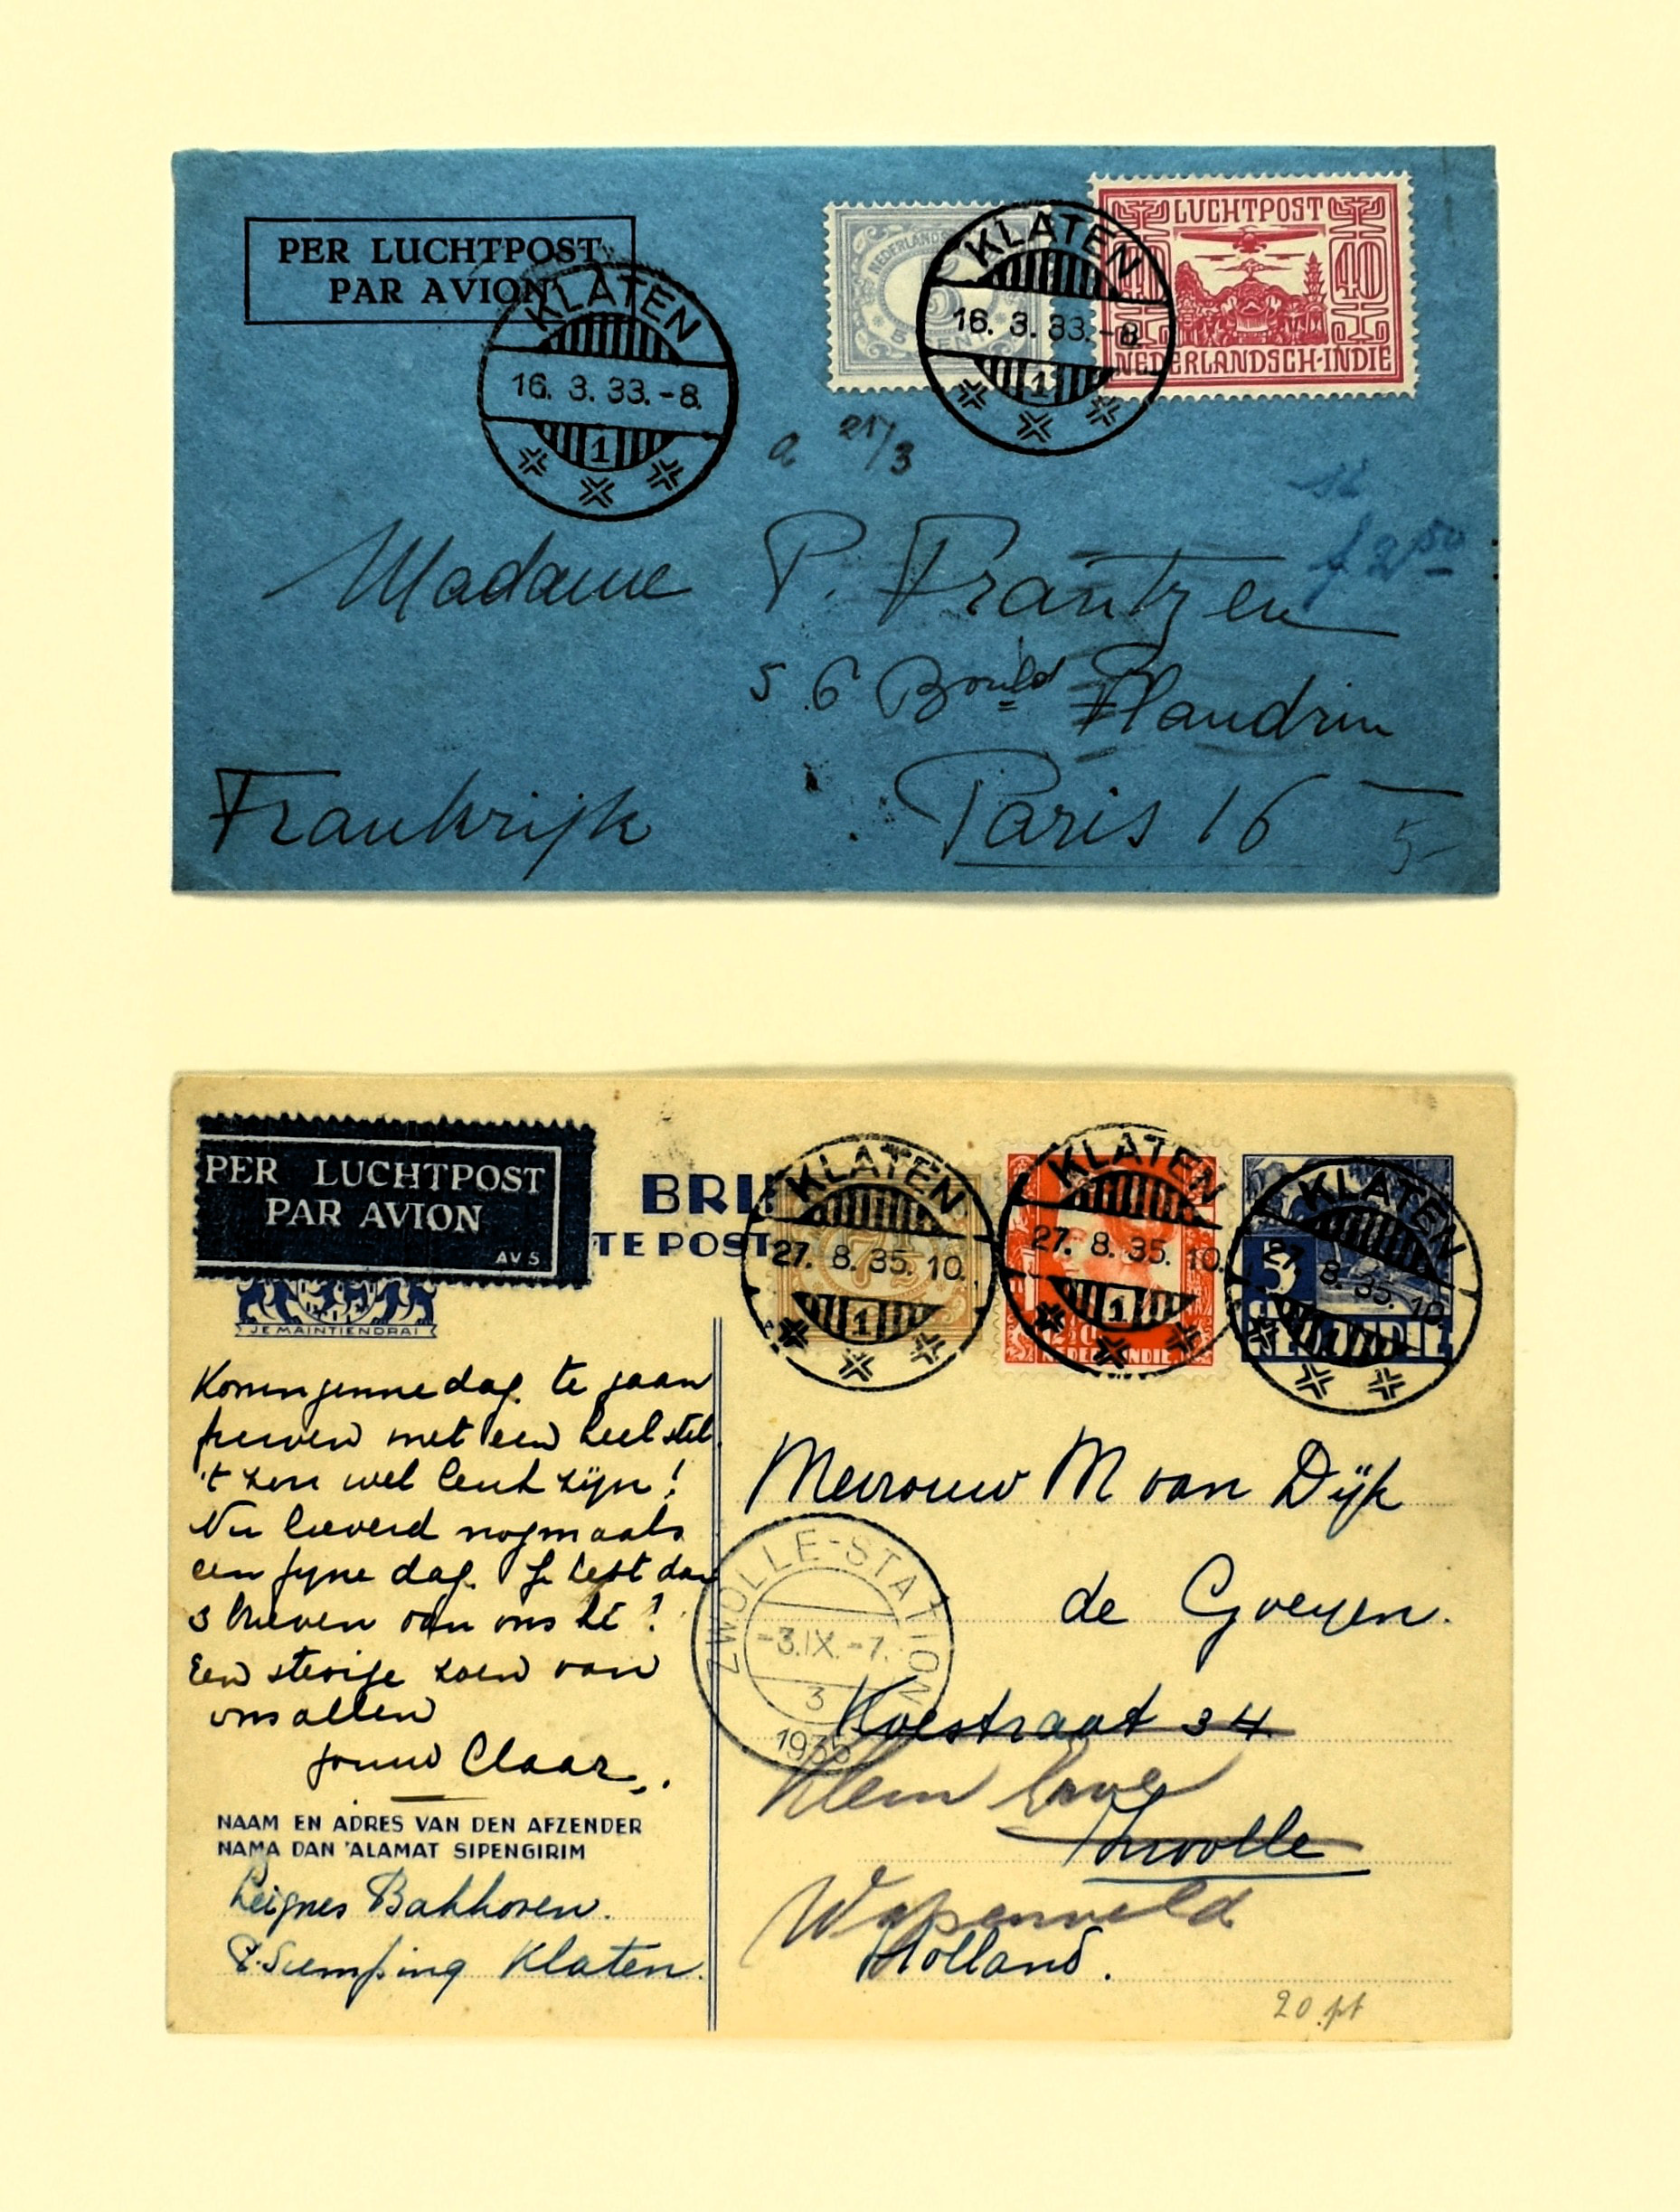 PER LUCHTPOST
PAR AVION
KLATEN
16. 3. 33.-8.
1
NEDERLANDSCH
5
CENT
KLATEN
16. 3. 33.-8.
1
LUCHTPOST
40 40
NEDERLANDSCH-INDIE
a 21/3
f 2,50
Madame P. Frantzen
56 Bould Flandrin
Frankrijk Paris 16
5-
PER LUCHTPOST
PAR AVION
AV 5
BRI
TE POST
JE MAINTIENDRAI
7½
KLATEN
27. 8. 35. 10.
1
KLATEN
27. 8. 35. 10.
1
NED. INDIE
5
KLATEN
27. 8. 35. 10.
Koninginnedag te gaan
met een heel stel
't kon wel leuk zijn!
Nu lieverd nogmaals
een fyne dag. Je hebt dan
3 brieven van ons hè!
Een stevige zoen van
ons allen
jouw Claar.
NAAM EN ADRES VAN DEN AFZENDER
NAMA DAN 'ALAMAT SIPENGIRIM
Bakhoven.
Klaten.
Mevrouw M van Dijk
de Goeyen.
ZWOLLE-STATION
-3.IX.-7.
3
1935
Koestraat 34
Klein
Zwolle
Wapenveld
Holland.
20 pt